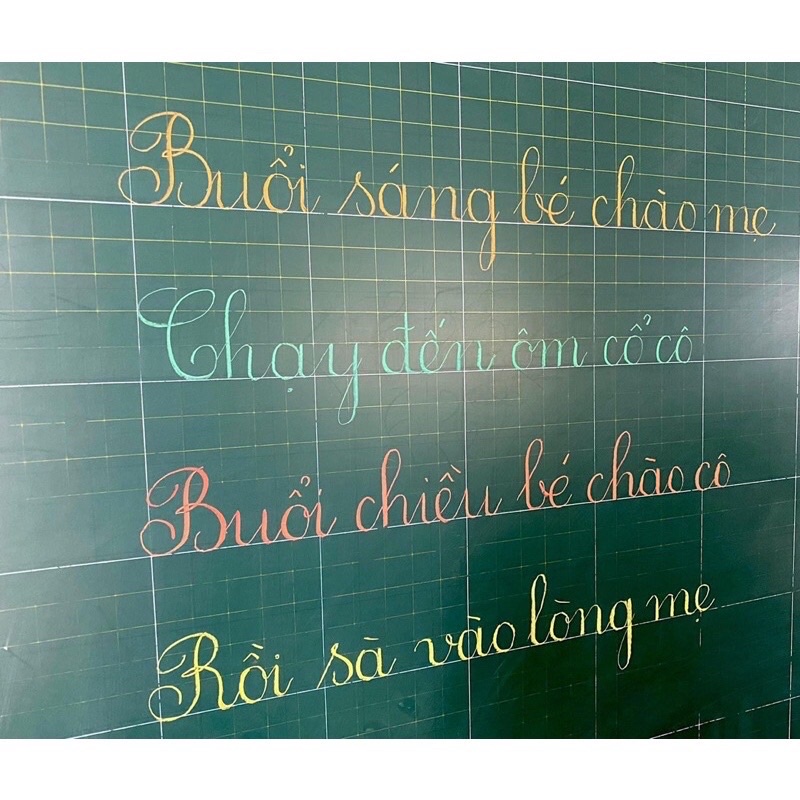 Buổi sáng bé chào mẹ
Chạy đến ôm cổ cô
Buổi chiều bé chào cô
Rồi sà vào lòng mẹ